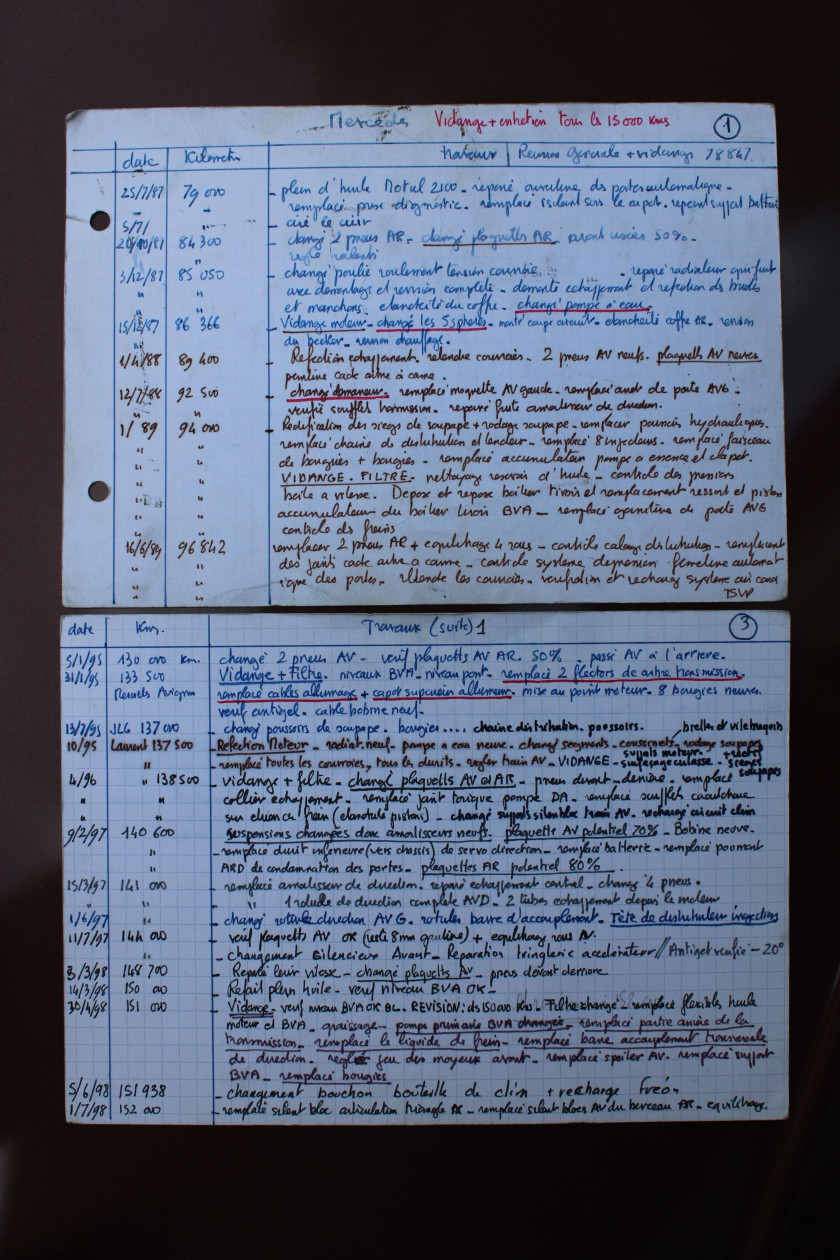 Mercedes Vidange + entretien tous les 15000 kms 1
date Kilometr travaux Revision Generale + vidange 78847.
25/7/87 79 000 - plein d'huile Motul 2100 - reparé ouverture des portes automatique -
" - remplacé prise diagnostic. remplacé isolant sous le capot. reparé support batterie
5/7/ " - ciré le cuir
84 300 - changé 2 pneus AR - changé plaquettes AR avant usées 50% -
" reglé ralenti
3/12/87 85 050 - changé poulie roulement tension courroie - reparé radiateur qui fuit
" " avec demontage et revision complete - demonté echappement et refection des brides
" " et manchons. etancheité du coffre. changé pompe à eau.
15/12/87 86 366 - Vidange moteur - changé les 5 spheres - monté coupe circuit. etancheité coffre AR. revision
" " du becker - revision chauffage.
1/4/88 89 400 - Refection echappement. retendre courroies - 2 pneus AV neufs. plaquettes AV neuves
" " peinture cache arbre à came.
12/7/88 92 500 - changé demarreur. remplacé moquette AV gauche - remplacé de porte AVG.
" " verifié soufflets - reparé fuite amortisseur de direction.
1/ 89 94 000 - Rectification des sieges de soupape + rodage soupape - remplacer poussoirs hydrauliques.
" " remplacé chaine de distribution et tendeur - remplacé 8 injecteurs - remplacé faisceau
" " de bougies + bougies - remplacé accumulateur pompe a essence et clapet.
" " VIDANGE. FILTRE. nettoyage d'huile - controle des
" " boite a vitesse. Depose et repose boitier tiroir et remplacement ressort et piston
" " accumulateur du boitier tiroir BVA - remplacé garniture de porte AVG
" " controle ds freins
16/6/89 96 842 remplacer 2 pneus AR + equilibrage 4 roues - controle calage distribution - remplacement
" " des joints cache arbre a came - controle systeme depression fermeture automat
" " ique des portes. retendre les courroies - verification et recharge systeme air cond
" " TSVP
date Kms. Travaux (suite) 1 3
5/1/95 130 000 km. changé 2 pneus AV - verif plaquettes AV AR. 50% - passé AV à l'arriere.
31/1/95 133 500 Vidange + Filtre. niveaux BVA - niveau pont - remplacé 2 flectors de arbre transmission.
Mercedes Avignon remplacé cables allumage + capot superieur allumeur. mise au point moteur - 8 bougies neuves.
verif antigel. cable bobine neuf.
13/7/95 JLG 137 000 - changé poussoirs de soupape. bougies.... chaine distribution. poussoirs.
bielles et vilebrequin
10/95 Laurent 137 500 Refection Moteur - radiat. neuf - pompe a eau neuve - changé segments - coussinets - rodage soupapes
" - remplacé toutes les courroies, tous les durits - regler train AV - VIDANGE - supports moteur - surfaçage culasse + rectif sieges soupapes
4/96 " 138500 - vidange + filtre - changé plaquettes AV et AR - pneus devant - derriere - remplacé
" " collier echappement - remplacé joint torique pompe DA - remplacé soufflets caoutchouc
" " sur etrier de frein (etancheité pistons) - changé supports silentbloc train AV - recharge circuit clim
9/2/97 140 600 Suspensions changées donc amortisseurs neufs. plaquette AV potentiel 70% - Bobine neuve.
" - remplacé durit inferieure (vers chassis) de servo direction - remplacé batterie - remplacé poumont
ARD de condamnation des portes - plaquettes AR potentiel 80%
15/3/97 141 000 - remplacé amortisseur de direction. reparé echappement central - changé 4 pneus.
" " " 1 rotule de direction complete AVD - 2 tubes echappement depuis le moteur
1/6/97 " - changé rotule direction AVG. rotules barre d'accouplement - Tête de distributeur injection
11/7/97 144 000 - verif plaquettes AV OK (reste 8mm garniture) + equilibrage roues AV.
" - changement Silencieux Avant - Reparation tringlerie accelerateur // Antigel verifié -20°
3/3/98 148 700 - Reparé levier vitesse - changé plaquettes AV - pneus devant derriere
14/3/98 150 000 - Refait plein huile - verif niveau BVA OK -
30/4/98 151 000 - Vidange - verif niveau BVA OK BL. REVISION: ds 15000 km - Filtre changé - remplacé flexibles huile
moteur et BVA - graissage - pompe primaire BVA changée - remplacé partie arriere de la
transmission. remplacé le liquide de frein - remplacé barre accouplement transversale
de direction. reglé jeu des moyeux avant - remplacé spoiler AV. remplacé support
BVA - remplacé bougies
5/6/98 151 938 - changement bouchon bouteille de clim + recharge Fréon
1/7/98 152 000 - remplacé silent bloc articulation triangle AR - remplacé silent blocs AV du berceau AR - equilibrage.